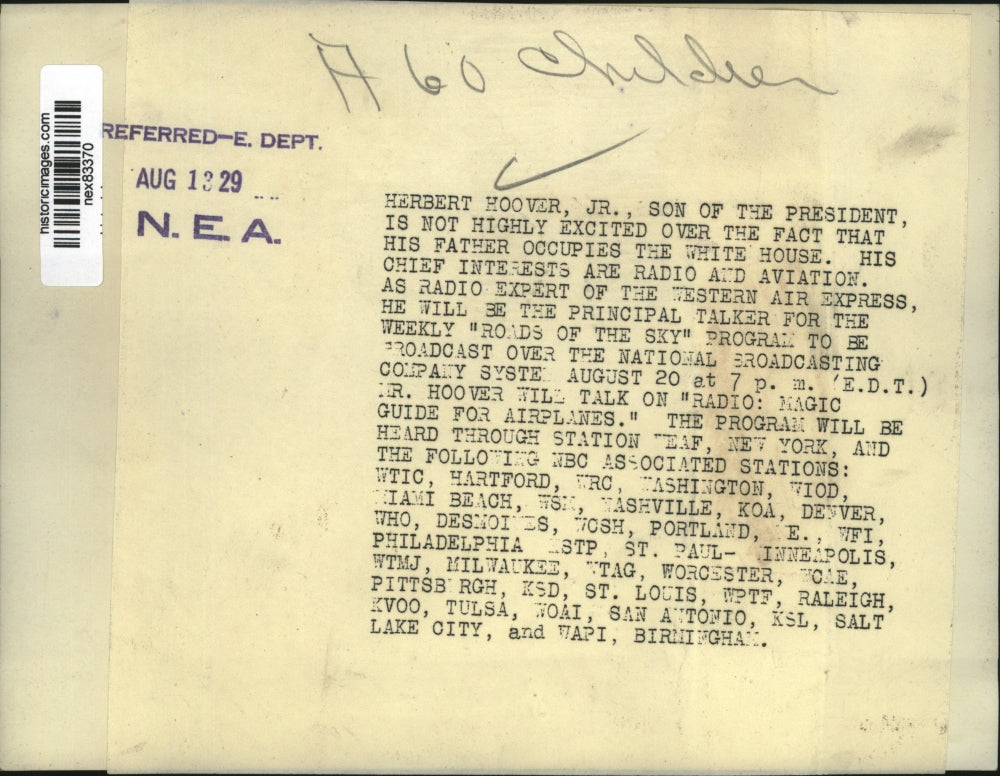 A 60 Children
historicimages.com
nex83370
REFERRED—E. DEPT.
AUG 13 29
N. E. A.
HERBERT HOOVER, JR., SON OF THE PRESIDENT,
IS NOT HIGHLY EXCITED OVER THE FACT THAT
HIS FATHER OCCUPIES THE WHITE HOUSE. HIS
CHIEF INTERESTS ARE RADIO AND AVIATION.
AS RADIO EXPERT OF THE WESTERN AIR EXPRESS,
HE WILL BE THE PRINCIPAL TALKER FOR THE
WEEKLY "ROADS OF THE SKY" PROGRAM TO BE
BROADCAST OVER THE NATIONAL BROADCASTING
COMPANY SYSTEM AUGUST 20 at 7 p. m. (E.D.T.)
MR. HOOVER WILL TALK ON "RADIO: MAGIC
GUIDE FOR AIRPLANES." THE PROGRAM WILL BE
HEARD THROUGH STATION WEAF, NEW YORK, AND
THE FOLLOWING NBC ASSOCIATED STATIONS:
WTIC, HARTFORD, WRC, WASHINGTON, WIOD,
MIAMI BEACH, WSM, NASHVILLE, KOA, DENVER,
WHO, DESMOINES, WCSH, PORTLAND, ME., WFI,
PHILADELPHIA KSTP, ST. PAUL- MINNEAPOLIS,
WTMJ, MILWAUKEE, WTAG, WORCESTER, WCAE,
PITTSBURGH, KSD, ST. LOUIS, WPTF, RALEIGH,
KVOO, TULSA, WOAI, SAN ANTONIO, KSL, SALT
LAKE CITY, and WAPI, BIRMINGHAM.